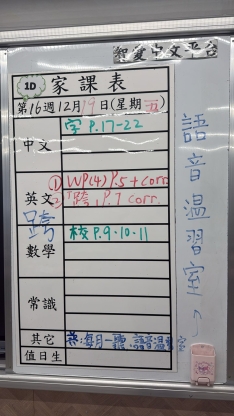 聖愛中文平台
1D 家課表
第16週12月19日(星期五)
中文 字 P.17-22
英文 ① WP(4) P.5 + corr.
② 「跨」P.7 corr.
跨
數學 校 P.9.10.11
常識
其它 英:每月一聽、語音溫習室
值日生
語音溫習室